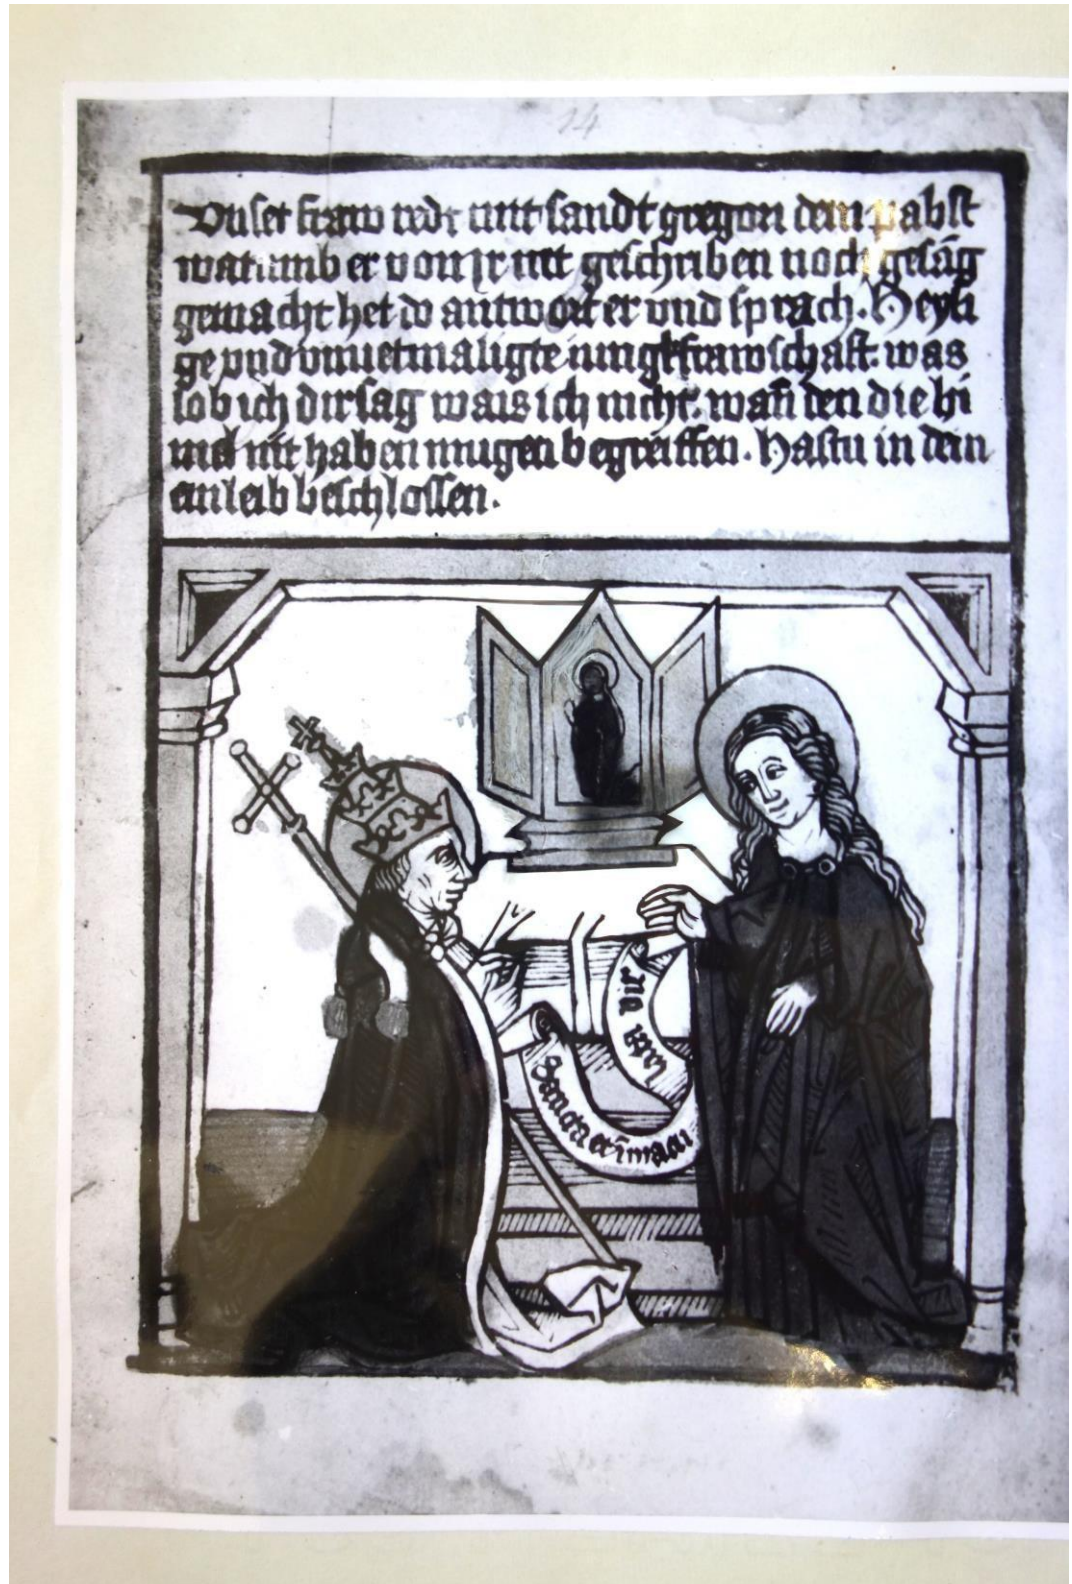 14
Vnser fraw redt mit sandt gregori dem pabst
warumb er von jr nit geschriben noch gesāg
gemacht het do antwort er vnd sprach. Heyli
ge vnd vnuermaligte iungkfrawschaft. was
lob ich dir sag wais ich nicht. wañ den die hi
mel nit haben mugen begreiffen. Hastu in dein
em leib beschlossen.
Sancta et īmacu
lata virgi